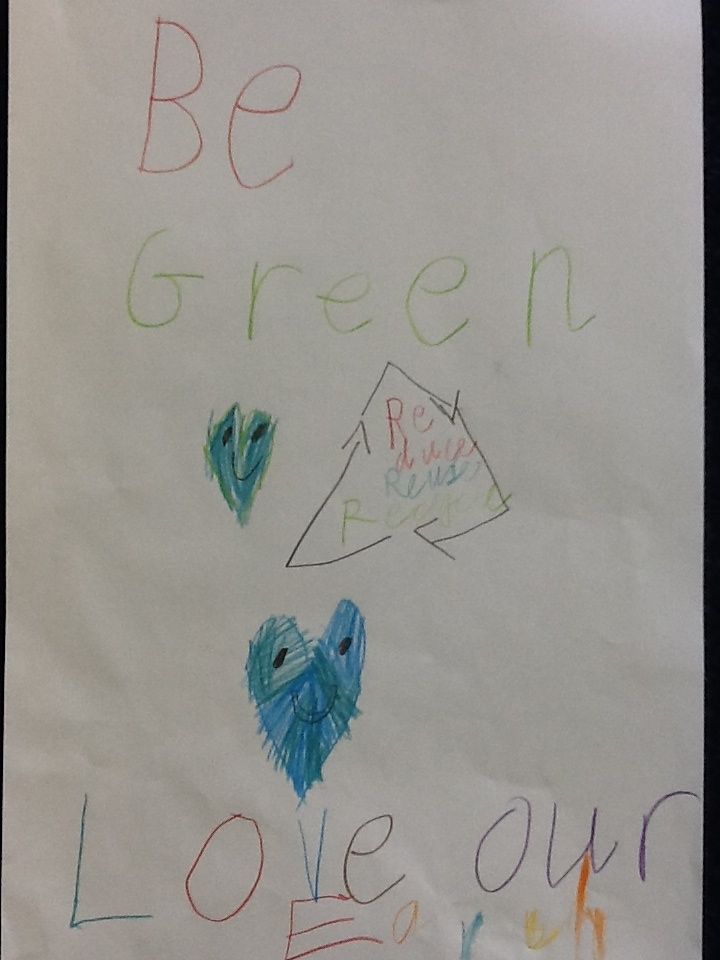 Be
Green
Re
duce
Reuse
Recycle
Love our
Earth